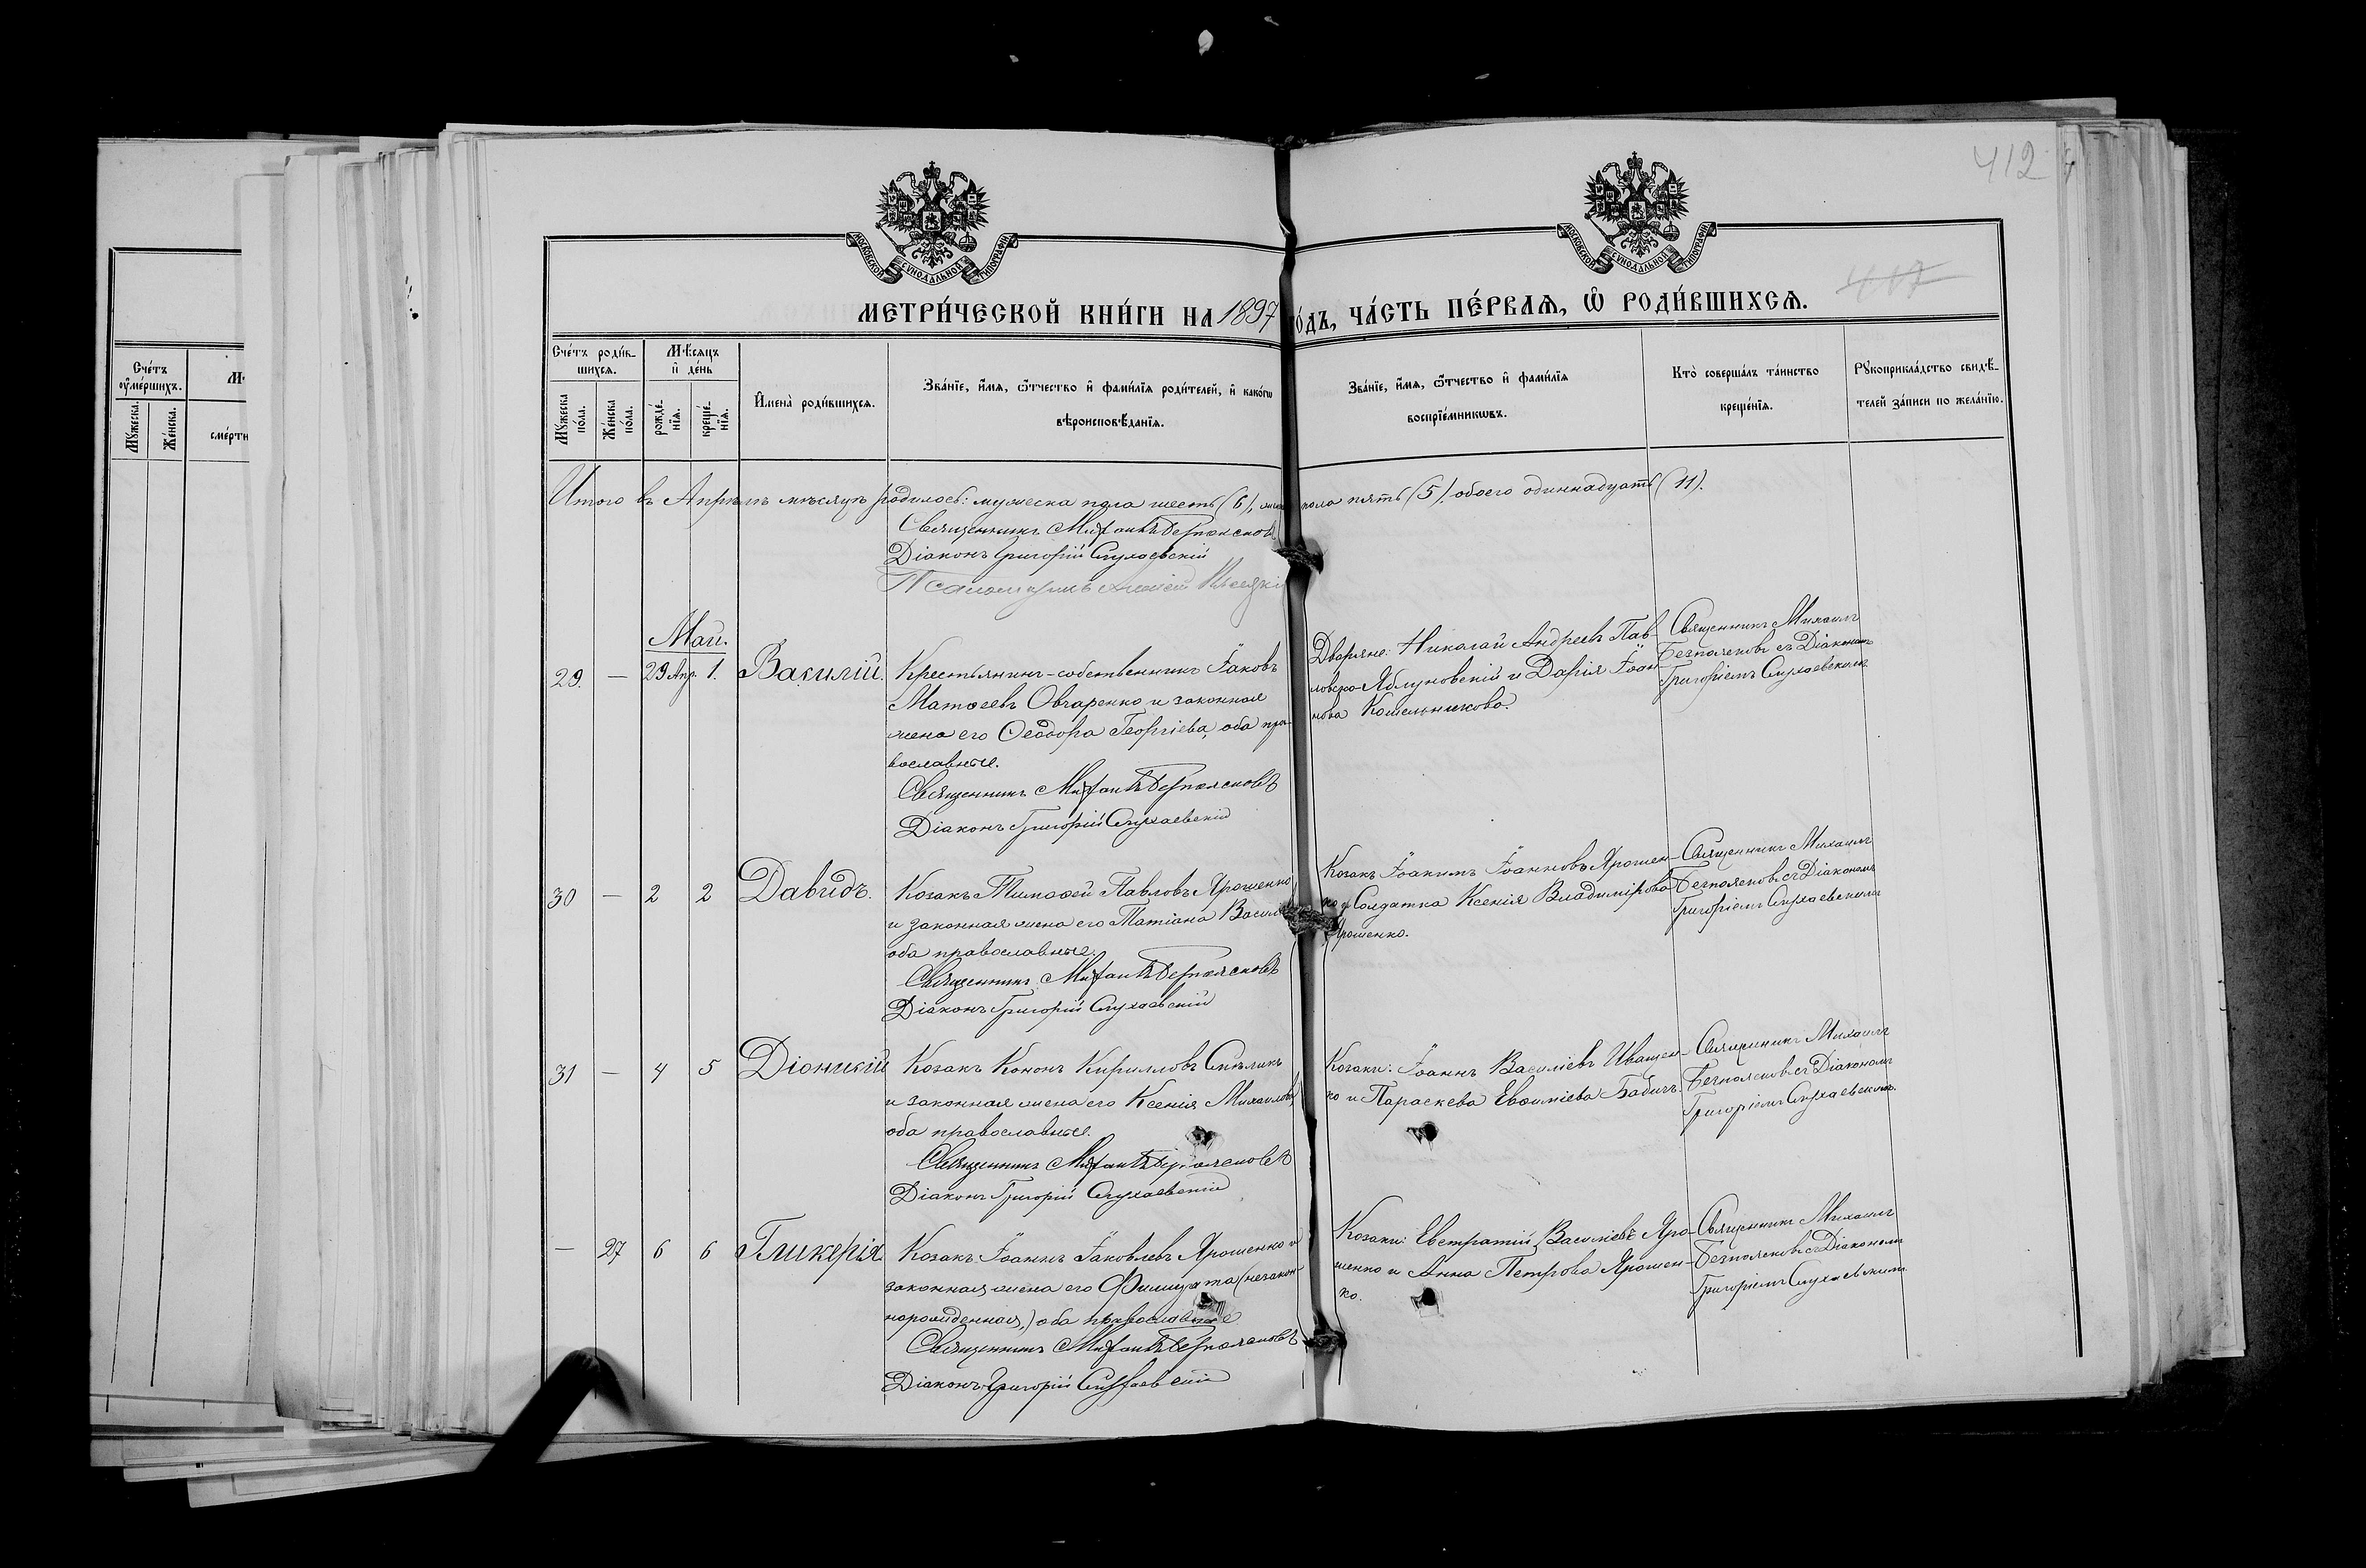 412
417
МОСКОВСКОЙ СУНОДАЛЬНОЙ ТИПОГРАФІИ
МОСКОВСКОЙ СУНОДАЛЬНОЙ ТИПОГРАФІИ
МЕТРИ́ЧЕСКОЙ КНИ́ГИ НА 1897 ГО́ДЪ, ЧА́СТЬ ПЕ́РВАѦ, Ѡ҆ РОДИ́ВШИХСѦ.
Сче́тъ
ᲂу҆ме́ршихъ.
Мꙋ́жеска.
Же́нска.
М
сме́рти
Сче́тъ роди́в-
шихсѧ.
Мꙋ́жеска по́ла.
Же́нска по́ла.
Мѣ́сѧцъ
и҆ де́нь
рожде́-
нїѧ.
креще́-
нїѧ.
И҆мена̀ роди́вшихсѧ.
Зва́нїе, и҆́мѧ, ѻ҆́тчество и҆ фами́лїѧ роди́телей, и҆ како́гѡ
вѣроисповѣ́данїѧ.
Зва́нїе, и҆́мѧ, ѻ҆́тчество и҆ фами́лїѧ
воспрїе́мникѡвъ.
Кто̀ соверша́лъ та́инство
креще́нїѧ.
Рꙋкоприкла́дство свидѣ́-
телей за́писи по жела́нїю.
Итого въ Апрѣлѣ мѣсяцѣ родилось: мужеска пола шесть (6), женска пола пять (5), обоего одиннадцать (11).
Священникъ Михаилъ Безпоясковъ
Діаконъ Григорій Слухаевскій
Псаломщикъ
Май.
29. — 29 Апр. 1. Василій.
Крестьянинъ-собственникъ Іаковъ
Матѳеевъ Овчаренко и законная
жена его Ѳеодора Георгіева, оба пра-
вославные.
Священникъ Михаилъ Безпоясковъ
Діаконъ Григорій Слухаевскій
Дворяне: Николай Андреевъ Пав-
ловско-Яблуновскій и Дарія Іоан-
нова Кошельникова.
Священникъ Михаилъ
Безпоясковъ съ Діакономъ
Григоріемъ Слухаевскимъ
30 — 2 2 Давидъ.
Козакъ Тимоѳей Павловъ Ярошенко
и законная жена его Татіана Василіева
оба православные.
Священникъ Михаилъ Безпоясковъ
Діаконъ Григорій Слухаевскій
Козакъ Іоакимъ Іоанновъ Ярошен-
ко и Солдатка Ксенія Владимірова
Ярошенко.
Священникъ Михаилъ
Безпоясковъ съ Діакономъ
Григоріемъ Слухаевскимъ
31 — 4 5 Діонисій
Козакъ Кононъ Кирилловъ
и законная жена его Ксенія Михаилова,
оба православные.
Священникъ Михаилъ Безпоясковъ
Діаконъ Григорій Слухаевскій
Козаки: Іоаннъ Василіевъ Иващен-
ко и Параскева Евѳиміева Бабичъ.
Священникъ Михаилъ
Безпоясковъ съ Діакономъ
Григоріемъ Слухаевскимъ.
— 27 6 6 Гликерія
Козакъ Іоаннъ Іаковлевъ Ярошенко и
законная жена его (незакон-
норожденная,) оба православные
Священникъ Михаилъ Безпоясковъ
Діаконъ Григорій Слухаевскій
Козаки: Евстратій Василіевъ Яро-
шенко и Анна Петрова Ярошен-
ко.
Священникъ Михаилъ
Безпоясковъ съ Діакономъ
Григоріемъ Слухаевскимъ